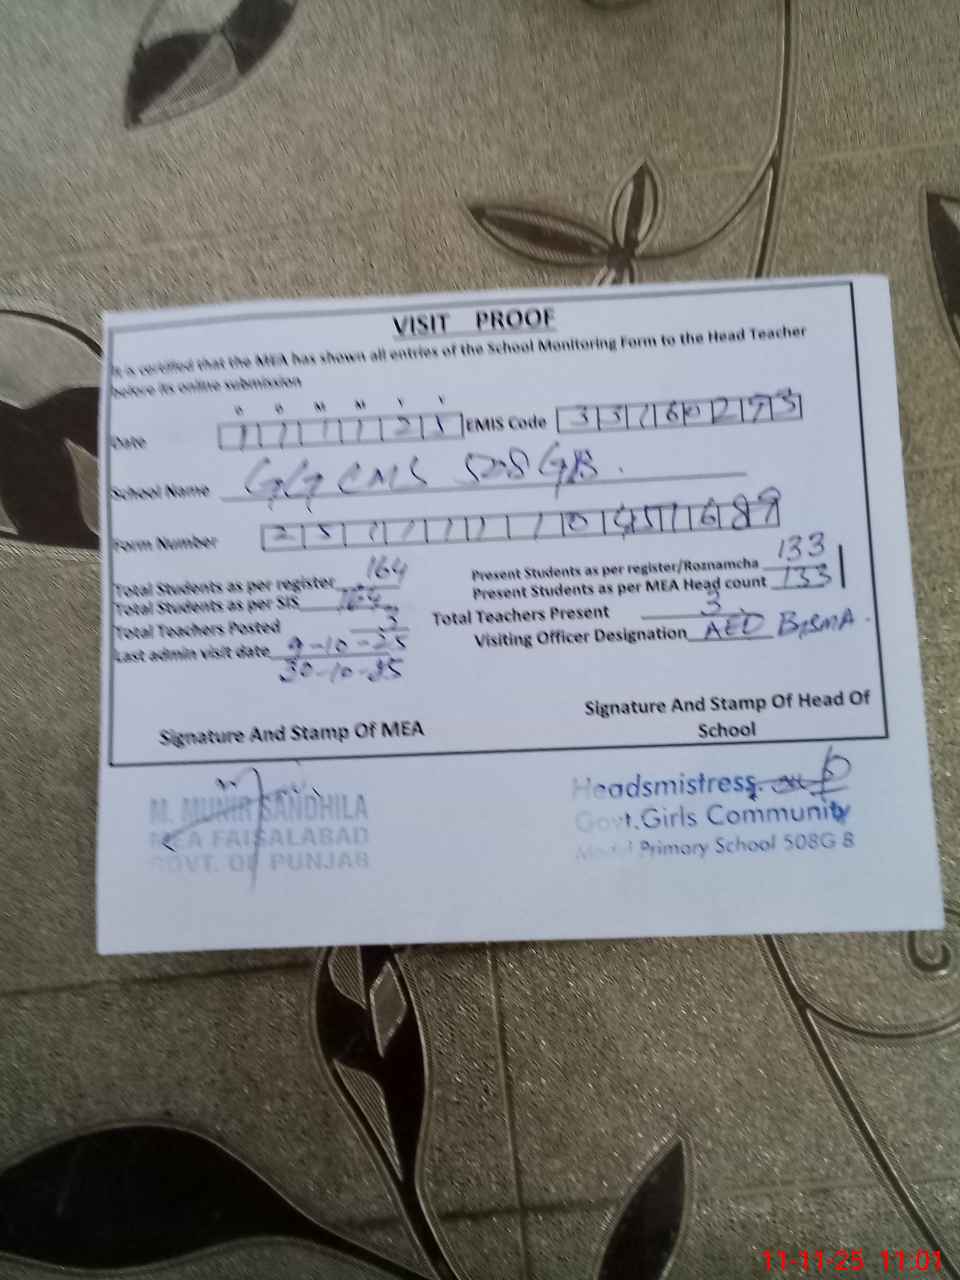 VISIT PROOF
It is certified that the MEA has shown all entries of the School Monitoring Form to the Head Teacher
before its online submission
D D M M Y Y
Date 1 1 1 1 2 5 EMIS Code 3 3 1 6 0 2 9 3
School Name GGCMS 508 GB.
Form Number 2 5 1 1 1 1 1 1 0 4 5 1 6 8 9
Total Students as per register 164 Present Students as per register/Roznamcha 133
Total Students as per SIS 164 Present Students as per MEA Head count 133
Total Teachers Posted 3 Total Teachers Present 3
Last admin visit date 9-10-25 Visiting Officer Designation AED BISMA.
30-10-25
Signature And Stamp Of MEA Signature And Stamp Of Head Of
School
M. MUNIR SANDHILA Headsmistress.
MEA FAISALABAD Govt.Girls Community
GOVT. OF PUNJAB Model Primary School 508G B
11-11-25 11:01